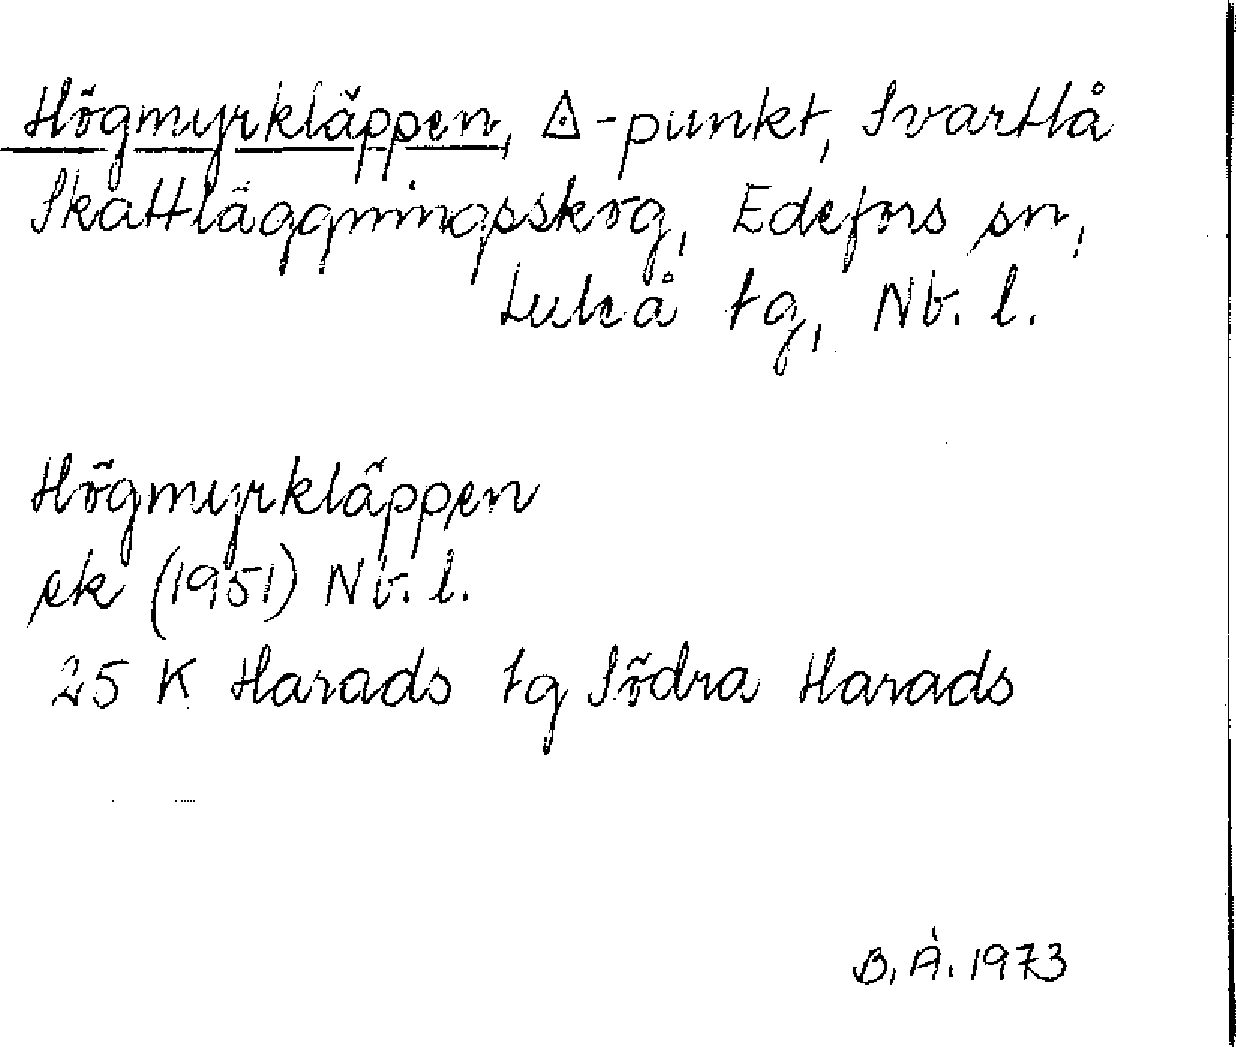 Högmyrkläppen, △-punkt, Svartlå
Skattläggningsskog, Edefors sn,
Luleå tg, Nb. l.
Högmyrkläppen
ek (1951) Nb. l.
25 K Harads tg Södra Harads
B. Å. 1973